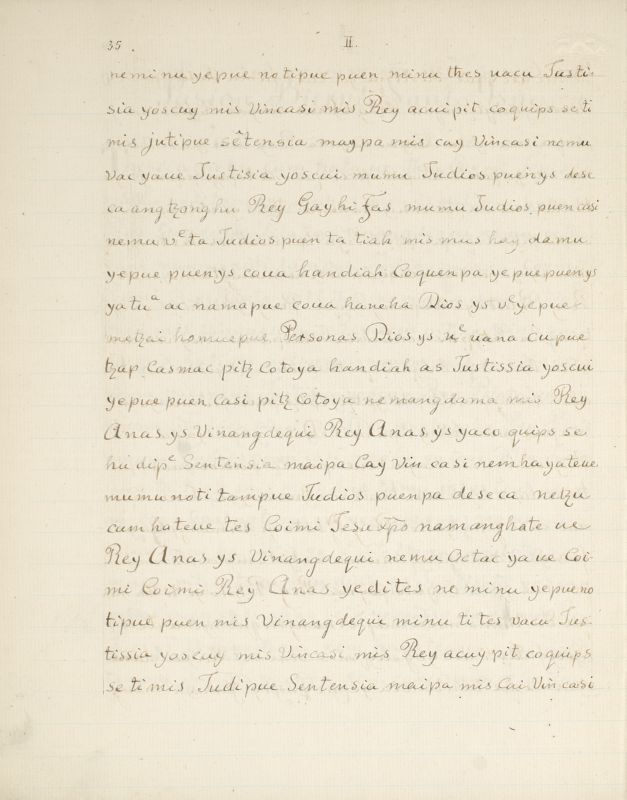 35. II.
nemi nu yepue notipue puen minu thes uacu Justi-
sia yoscuy mis Vincasi mis Rey acuipit coquips se ti
mis jutipue sêtensia maypa mis cay Vincasi nemu
vac yaue Justisia yoscui mumu Judios puenys dese
ca angtzonghu Rey Gayhi Fas mumu Judios puen casi
nemu vᵉ ta Judios puen ta tiah mis mus hay damu
yepue puenys coua handiah Coquenpa yepue puenys
yatuᵃ ac namapue coua haneha Dios ys vᵉ yepue
metzai homuepue Personas Dios ys uᵉ uana cupue
tzap Casmac pitz Cotoya handiah as Justissia yoscui
yepue puen Casi pitz Cotoya nemangdama mis Rey
Anas ys Vinangdequi Rey Anas ys yaco quips se
hu dipᵉ Sentensia maipa Cay Vin casi nemha yateue
mumu noti tampue Judios puenpa deseca netzu
cumhateue tes Coimi Jesu xpo namanghate ue
Rey Anas ys Vinangdequi nemu Octac ya ue Coi-
mi Coimi Rey Anas yedites ne minu yepue no
tipue puen mis Vinangdequi minu ti tes vacu Jus-
tissia yoscuy mis Vincasi mis Rey acuy pit coquips
se ti mis Judipue Sentensia maipa mis Cui Vin casi